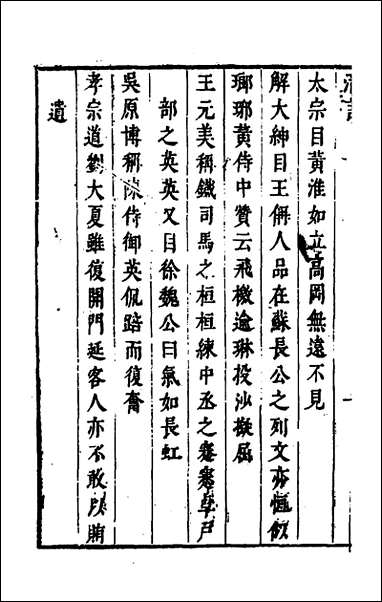 太宗目黄淮如立高岡無遠不見
解大紳目王偁人品在蘇長公之列文亦恒似
瑯琊黄侍中贊云飛檄逾琳投沙擬屈
王元美稱鐵司馬之桓桓練中丞之蹇蹇卓戸
部之英英又目徐魏公曰氣如長虹
吳原博稱陳侍御英侃踣而復奮
孝宗道劉大夏雖復開門延客人亦不敢以賄
遺